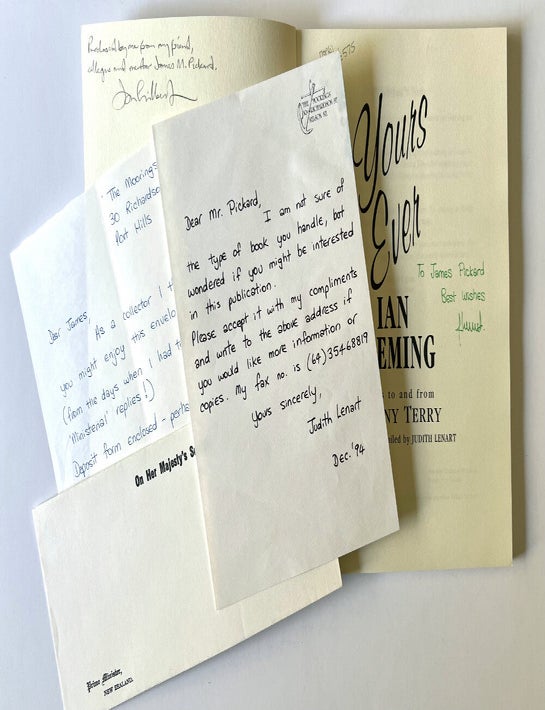 Purchased by me from my friend,
collegue and mentor James M. Pickard.
575
THE MOORINGS
RICHARDSON ST
NELSON NZ.
Dear Mr. Pickard,
I am not sure of
the type of book you handle, but
wondered if you might be interested
in this publication.
Please accept it with my compliments
and write to the above address if
you would like more information or
copies. My fax no. is (64)35468819
Yours sincerely,
Judith Lenart
Dec. '94
The Moorings
30 Richardson
Port Hills
Dear James,
As a collector I t
you might enjoy this envelo
(from the days when I had t
'Ministerial' replies!)
Deposit form enclosed - perha
On Her Majesty's S
Prime Minister,
NEW ZEALAND.
Yours
Ever
IAN
EMING
To James Pickard
Best wishes
s to and from
NY TERRY
piled by JUDITH LENART